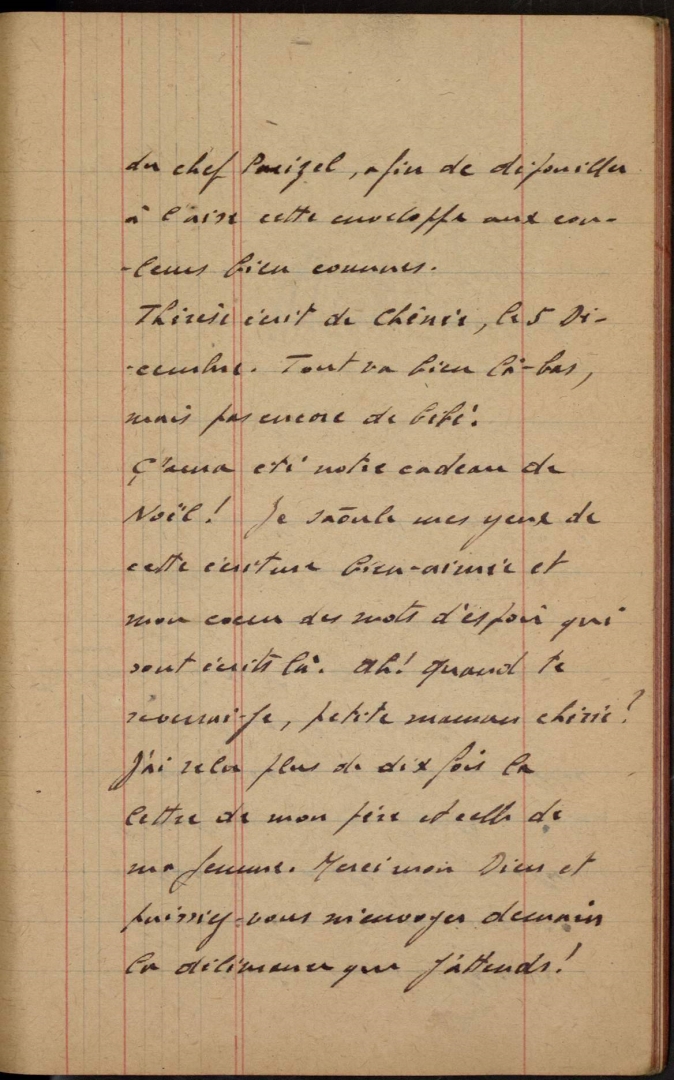 du chef Paeizel, afin de dépouiller
à l'aise cette enveloppe aux cou-
-leurs bien connues.
Thérèse écrit de Chênée, le 5 Dé-
-cembre. Tout va bien là-bas,
mais pas encore de bébé!
Ç'aura été notre cadeau de
Noël! Je saoûle mes yeux de
cette écriture bien-aimée et
mon coeur des mots d'espoir qui
sont écrits là. Ah! quand te
reverrai-je, petite maman chérie?
J'ai relu plus de dix fois la
lettre de mon père et celle de
ma femme. Merci mon Dieu et
puissiez-vous m'envoyer demain
la délivrance que j'attends!